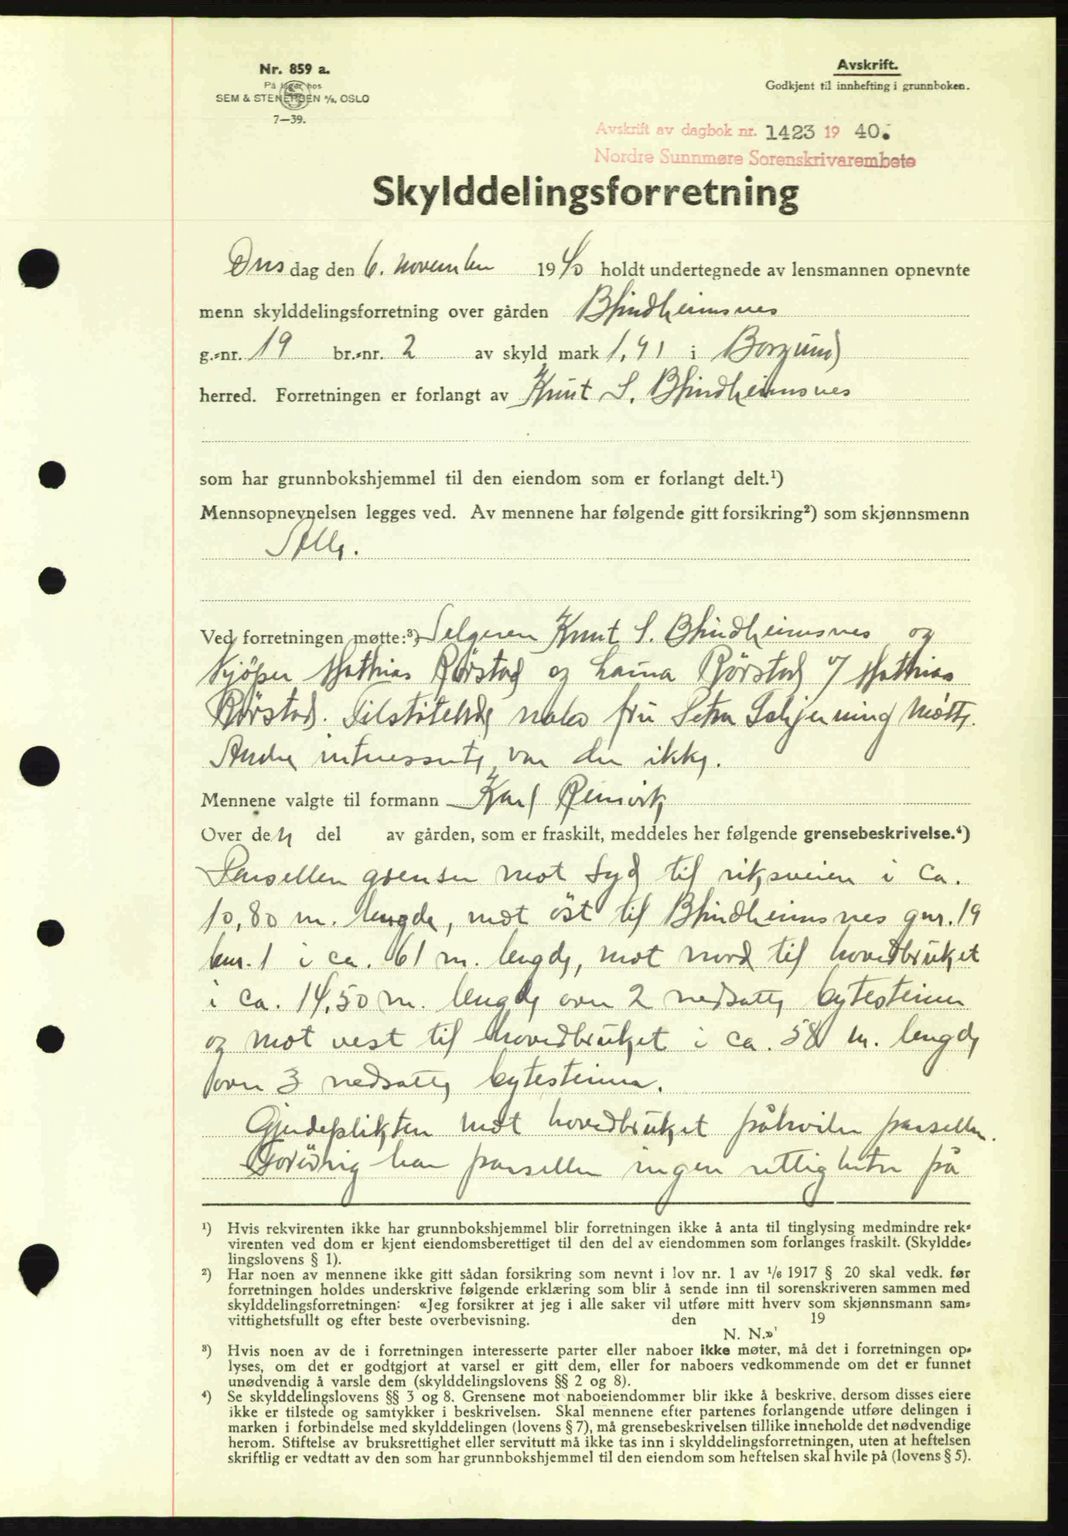 Nr. 859 a.
På lager hos
SEM & STENERSEN A/S, OSLO
7—39.
Avskrift.
Godkjent til innhefting i grunnboken.
Avskrift av dagbok nr. 1423 19 40.
Nordre Sunnmøre Sorenskrivarembete
Skylddelingsforretning
Onsdag den 6. november 1940 holdt undertegnede av lensmannen opnevnte
menn skylddelingsforretning over gården Blindheimsnes
g.-nr. 19 br.-nr. 2 av skyld mark 1,91 i Borgund
herred. Forretningen er forlangt av Knut S. Blindheimsnes
som har grunnbokshjemmel til den eiendom som er forlangt delt.¹)
Mennsopnevnelsen legges ved. Av mennene har følgende gitt forsikring²) som skjønnsmenn
Alle.
Ved forretningen møtte:³) Selgeren Knut S. Blindheimsnes og
kjøper Mathias Rørstad og Laura Rørstad v/ Mathias
Rørstad. Tilstøtende nabo fru Petra Schjerning møtte.
Andre interessente var der ikke.
Mennene valgte til formann Karl Reinvik
Over den del av gården, som er fraskilt, meddeles her følgende grensebeskrivelse.⁴)
Parsellen grenser mot syd til riksveien i ca.
10,80 m. lengde, mot öst til Blindheimsnes gnr. 19
bnr. 1 i ca. 61 m. lengde, mot nord til hovedbruket
i ca. 14,50 m. lengde over 2 nedsatte bytesteiner
og mot vest til hovedbruket i ca. 58 m. lengde
over 3 nedsatte bytesteine.
Gjerdeplikten mot hovedbruket påhviler parsellen.
Forövrig har parsellen ingen rettigheter på
¹) Hvis rekvirenten ikke har grunnbokshjemmel blir forretningen ikke å anta til tinglysing medmindre rek-
virenten ved dom er kjent eiendomsberettiget til den del av eiendommen som forlanges fraskilt. (Skyldde-
lingslovens § 1).
²) Har noen av mennene ikke gitt sådan forsikring som nevnt i lov nr. 1 av 1/6 1917 § 20 skal vedk. før
forretningen holdes underskrive følgende erklæring som blir å sende inn til sorenskriveren sammen med
skylddelingsforretningen: «Jeg forsikrer at jeg i alle saker vil utføre mitt hverv som skjønnsmann sam-
vittighetsfullt og efter beste overbevisning. den 19
N. N.»'
³) Hvis noen av de i forretningen interesserte parter eller naboer ikke møter, må det i forretningen op-
lyses, om det er godtgjort at varsel er gitt dem, eller for naboers vedkommende om det er funnet
unødvendig å varsle dem (skylddelingslovens §§ 2 og 8).
⁴) Se skylddelingslovens §§ 3 og 8. Grensene mot naboeiendommer blir ikke å beskrive, dersom disses eiere
ikke er tilstede og samtykker i beskrivelsen. Skal mennene efter partenes forlangende utføre delingen i
marken i forbindelse med skylddelingen (lovens § 7), må grensebeskrivelsen tillike inneholde det nødvendige
herom. Stiftelse av bruksrettighet eller servitutt må ikke tas inn i skylddelingsforretningen, uten at heftelsen
skriftlig er vedtatt av den som har grunnbokshjemmel til den eiendom som heftelsen skal hvile på (lovens § 5).